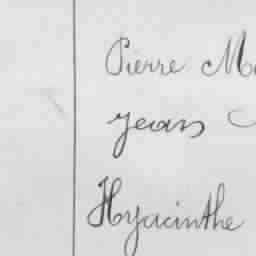 Pierre Ma
years
Hyacinthe